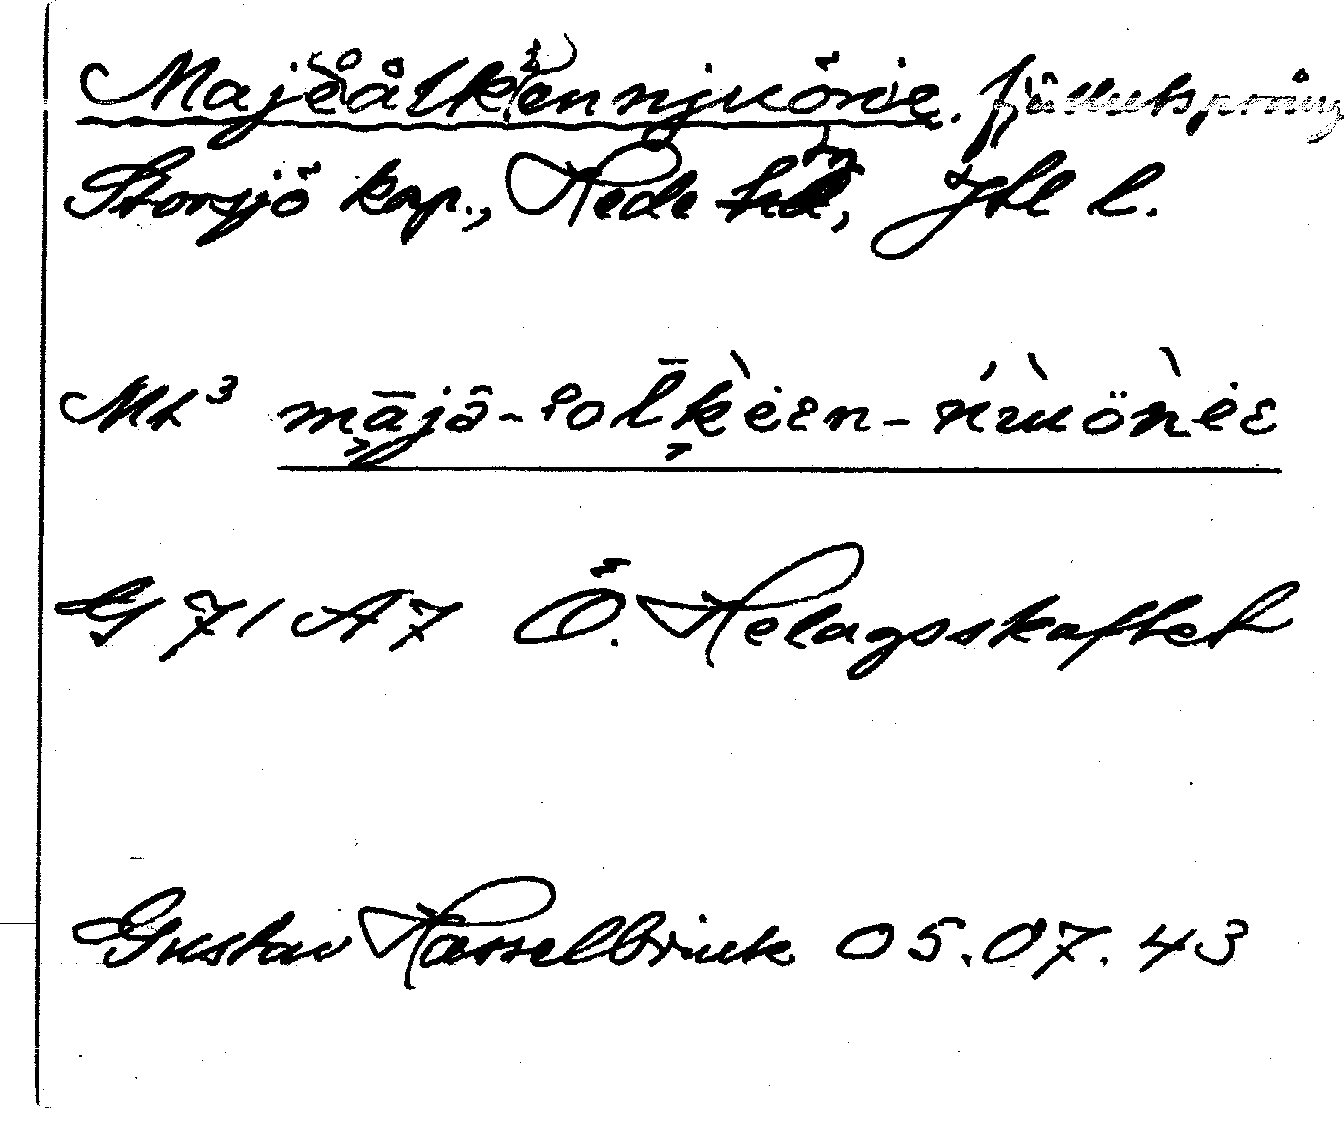 Majeåålkennjuönie. fjällutsprång
Storsjö kap., Hede sn, Jtl l.
Mt³ mājā-ɛolkèen-nuönèe
G 71 A 7 Ö. Helagsskaftet
Gustav Hasselbrink 05.07.43